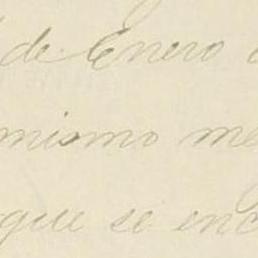 de Enero
mismo me
que se enc